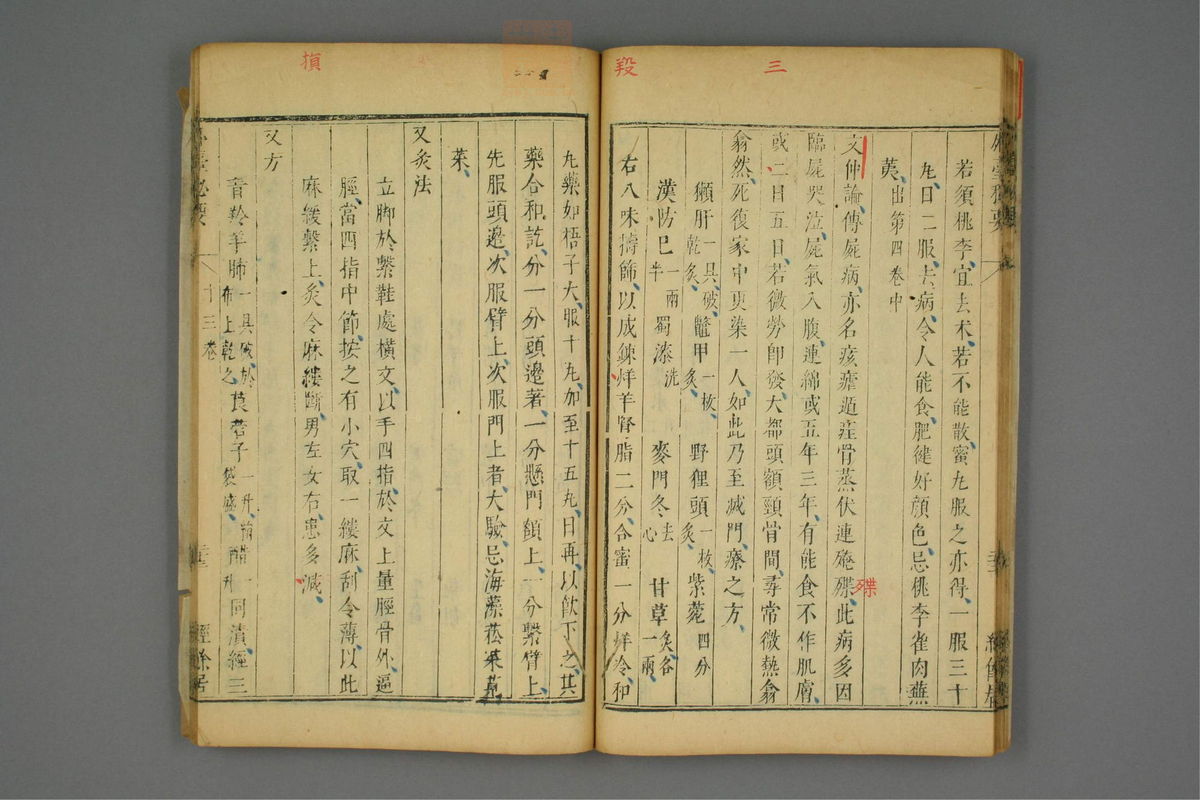 三
段
若須桃李宜去朮若不能散蜜丸服之亦得一服三十
丸日二服去病令人能食肥健好顔色忌桃李雀肉蕪
荑出第四卷中
文仲論傳屍病亦名痎瘧遁疰骨蒸伏連殗殜此病多因
殜
臨屍哭泣屍氣入腹連綿或五年三年有能食不作肌膚
或二日五日若微勞即發大都頭額頸骨間尋常微熱翕
翕然死復家中更染一人如此乃至滅門療之方
獺肝一具破乾炙 鼈甲一枚炙 野狸頭一枚炙 紫菀四分
漢防巳一兩半 蜀漆洗 麥門冬去心 甘草炙各一兩
右八味擣篩以成鍊烊羊腎脂二分合蜜一分烊令和
丸藥如梧子大服十丸加至十五丸日再以飲下之其
藥合和訖分一分頭邊著一分懸門額上一分繫臂上
先服頭邊次服臂上次服門上者大驗忌海藻菘菜莧
菜
又灸法
立脚於繫鞋處橫文以手四指於文上量脛骨外逼
脛當四指中節按之有小穴取一縷麻刮令薄以此
麻緩繫上灸令麻縷斷男左女右患多減
又方
青羚羊肺一具破於布上乾之 莨菪子一升 醋一升 同漬經三
十三卷
經餘居